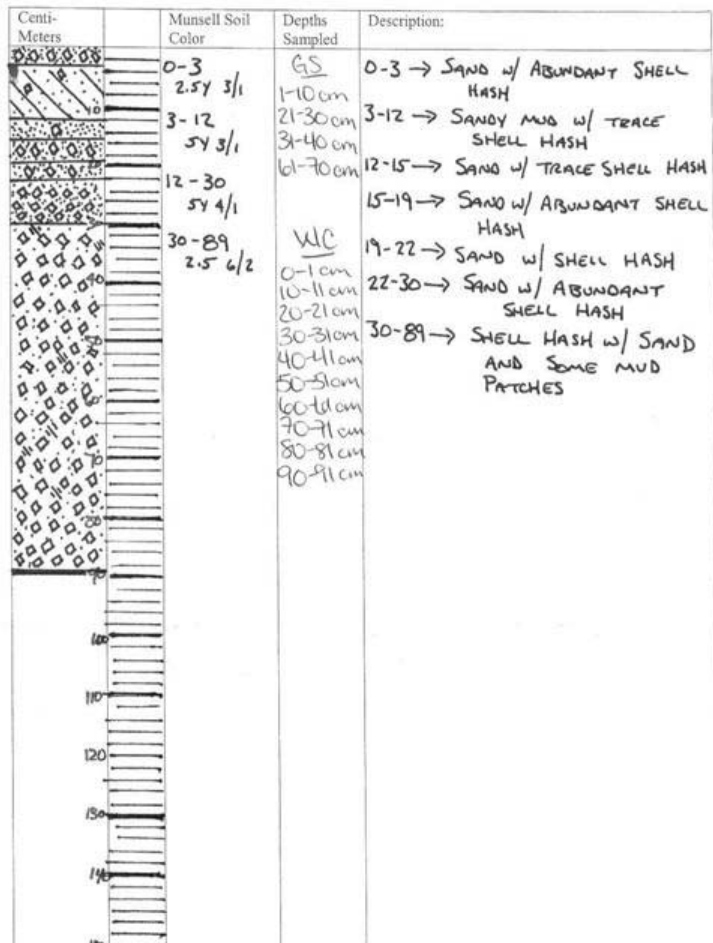 Centi-
Meters
Munsell Soil
Color
Depths
Sampled
Description:
10
40
50
60
70
80
90
100
110
120
130
140
0-3
2.5Y 3/1
3-12
5Y 3/1
12-30
5Y 4/1
30-89
2.5 6/2
GS
1-10cm
21-30cm
31-40cm
61-70cm
WC
0-1cm
10-11cm
20-21cm
30-31cm
40-41cm
50-51cm
60-61cm
70-71cm
80-81cm
90-91cm
0-3 → SAND W/ ABUNDANT SHELL
HASH
3-12 → SANDY MUD W/ TRACE
SHELL HASH
12-15 → SAND W/ TRACE SHELL HASH
15-19 → SAND W/ ABUNDANT SHELL
HASH
19-22 → SAND W/ SHELL HASH
22-30 → SAND W/ ABUNDANT
SHELL HASH
30-89 → SHELL HASH W/ SAND
AND SOME MUD
PATCHES